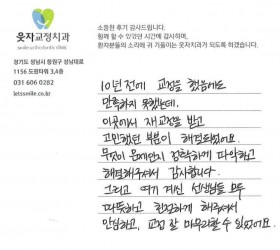 웃자교정치과
경기도 성남시 중원구 성남대로
1156 도원타워 3,4층
031 606 0282
letssmile.co.kr
소중한 후기 감사드립니다.
함께 할 수 있었던 시간에 감사하며,
환자분들의 소리에 귀 기울이는 웃자교정치과가 되도록 하겠습니다.
10년 전에 교정을 했음에도
만족하지 못했는데,
이곳에서 재교정을 받고
고민했던 부분이 해결되었어요.
무엇이 문제인지 정확하게 파악하고
해결해주셔서 감사합니다.
그리고 여기 계신 선생님들 모두
따뜻하고 친절하게 해주셔서
안심하고, 교정 잘 마무리할 수 있었어요.